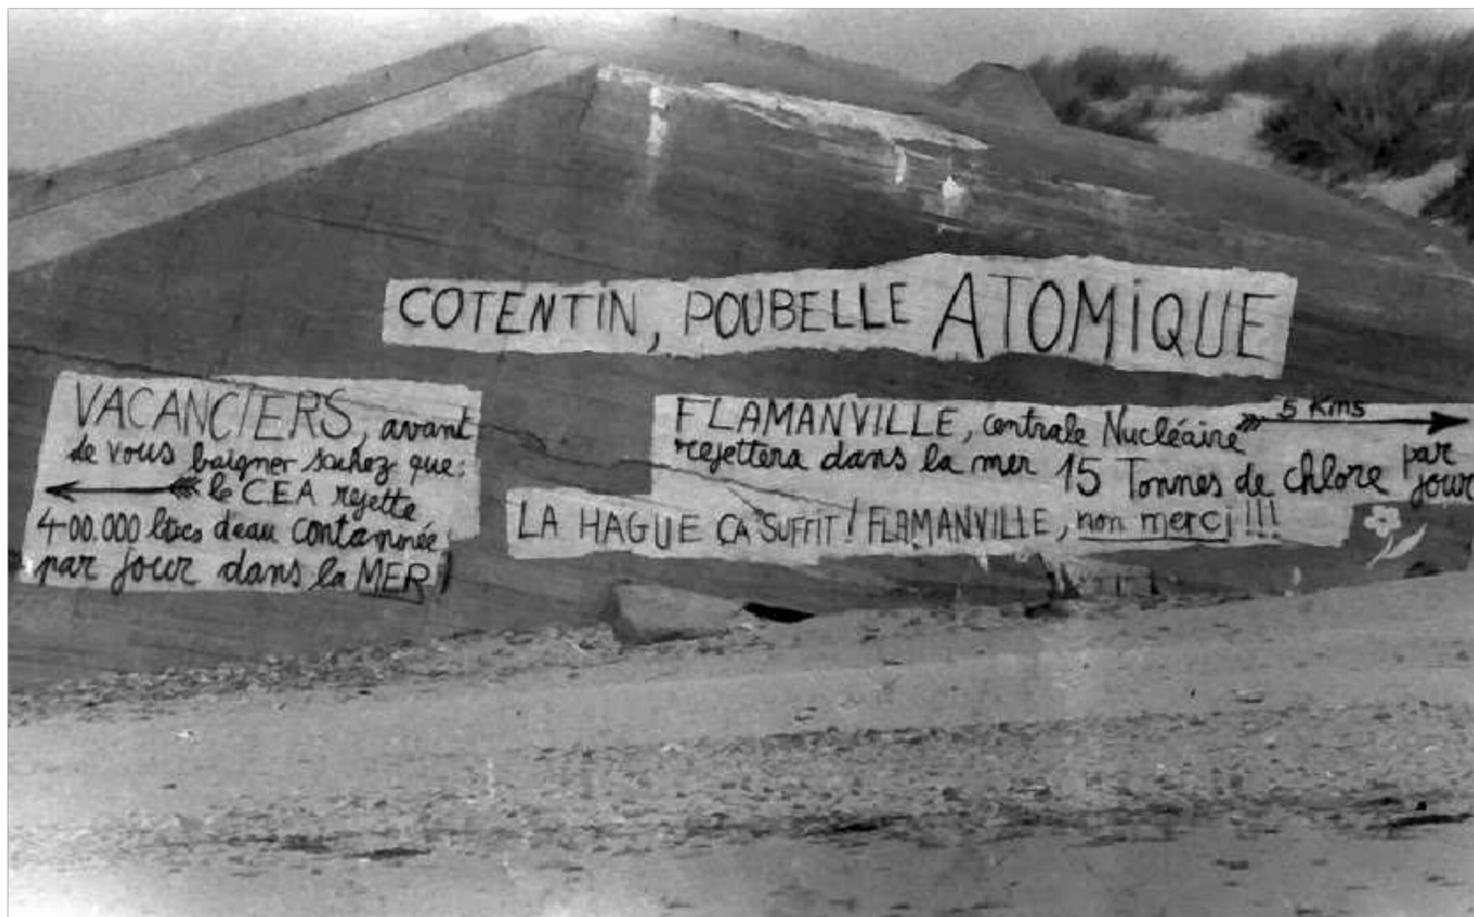 COTENTIN, POUBELLE ATOMIQUE
VACANCIERS, avant
de vous baigner sachez que:
le CEA rejette
400.000 litres d'eau contaminée
par jour dans la MER!
FLAMANVILLE, centrale Nucléaire 5 Kms
rejettera dans la mer 15 Tonnes de chlore par jour
LA HAGUE ÇA SUFFIT! FLAMANVILLE, non merci!!!